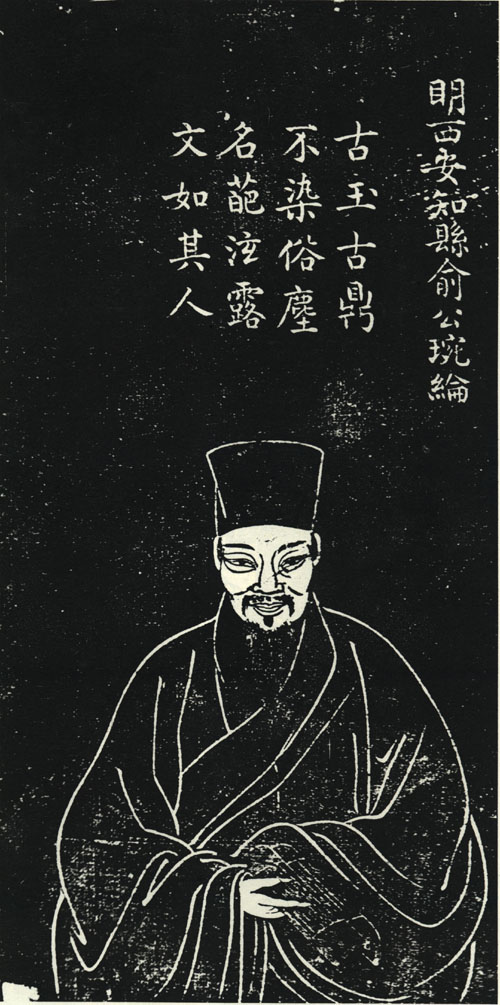 明西安知縣俞公琬綸
古玉古鼎
不染俗塵
名葩泫露
文如其人